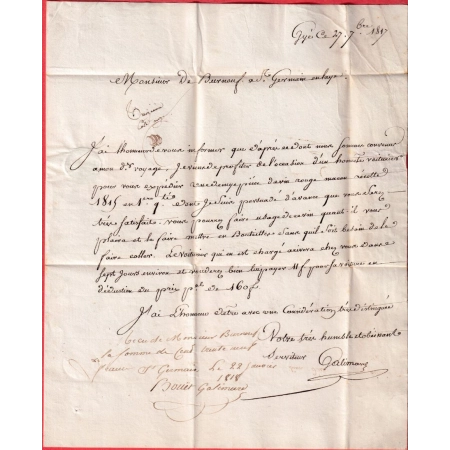 Gyé Ce 27. 7bre 1817
Monsieur De Burneuf a St. Germain en laye.
J'ai l'honneur de vous informer que d'après ce dont nous sommes convenus
a mon dr. voyage, Je viens de profiter de l'occasion d'un honnête voiturier
pour vous expédier une demy pièce de vin rouge récolte
1815 en 1ere q. dont Je suis persuadé d'avance que vous serez
très satisfaite. vous pouvez faire usage de ce vin quand il vous
plaira et le faire mettre en Bouteilles sans qu'il soit besoin de le
faire coller. Le voiturier qui en est chargé arrivera chez vous dans
sept Jours environ et voudrez bien lui payer pour sa voiture en
déduction du prix pal. de 160f.
J'ai L'honneur d'être avec une Considération très distinguée
Votre très humble et obéissant
Serviteur Galimard
Reçu de Monsieur Burneuf
la somme de Cent trente neuf
francs St Germain Le 22 Janvier
1818